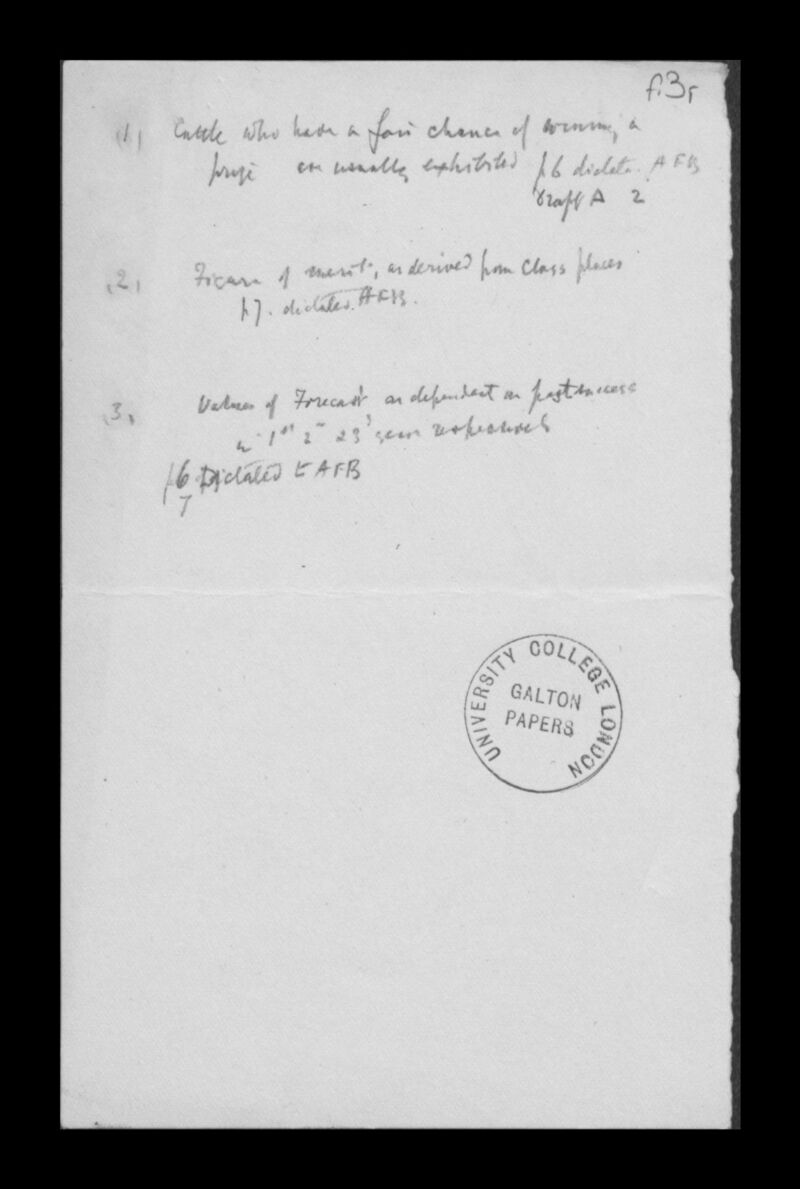 f.3r
(1) Cattle who have a fair chance of winning a
prize are usually exhibited p 6 dictated AFB
A 2
(2) Figure of merit, as derived from Class places
p 7. dictated. AFB.
(3) Values of Forecast as dependent on past success
in 1st 2nd & 3d years respectively
p 6 Dictated to AFB
7
UNIVERSITY COLLEGE LONDON
GALTON
PAPERS